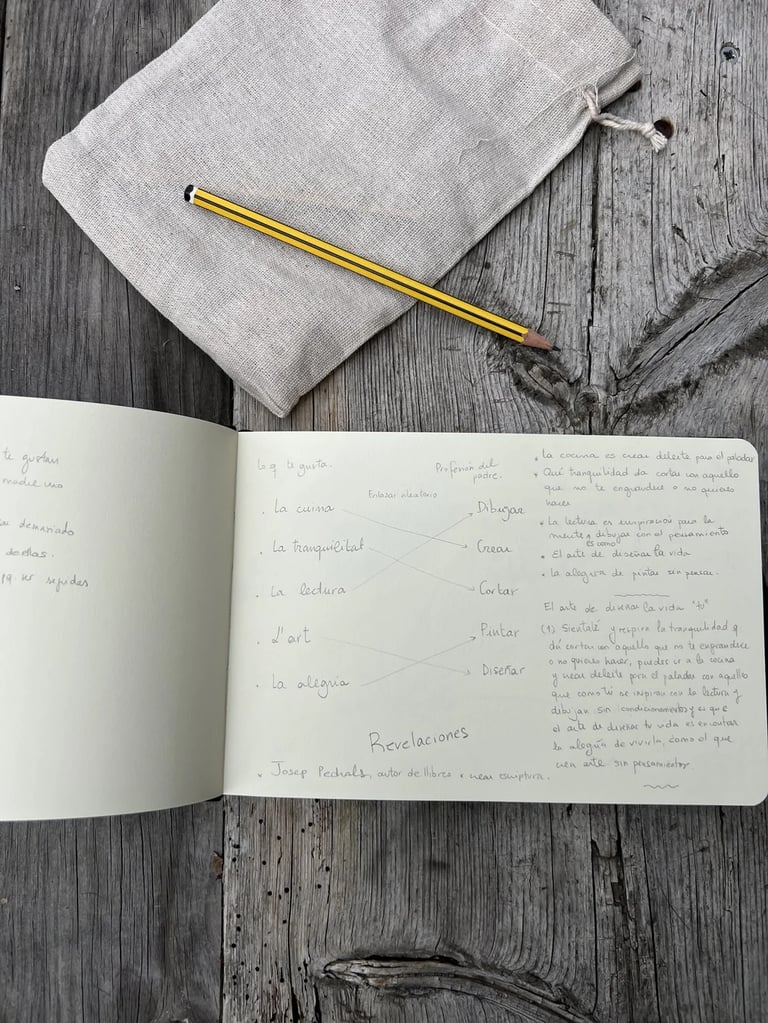 te gustan
nadie uno
demasiado
dellas.
lo q te gusta.
Profesión del
padre.
Enlazar aleatorio
. La cuina
Dibujar
. La tranquilitat
Crear
. La lectura
Cortar
. L'art
Pintar
. La alegria
Diseñar
Revelaciones
Josep Pedrals, autor de llibres
. La cocina es crear deleite para el paladar
. Qué tranquilidad da cortar con aquello
que no te engrandece o no quieres
hacer
. La lectura es inspiración para la
mente, es como dibujar con el pensamiento
. El arte de diseñar la vida
. La alegria de pintar sin pensar.
El arte de diseñar la vida "tu"
(1) Sientate y respira la tranquilidad q
da cortar con aquello que no te engrandece
o no quieres hacer, puedes ir a la cocina
y crear deleite para el paladar con aquello
que como tú se inspiran con la lectura y
dibujan sin (condicionamientos) y es que
el arte de diseñar tu vida es encontrar
la alegría de vivirla, como el que
crea arte sin pensamientos.